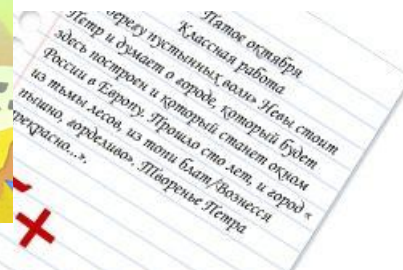 Пятое октября
Классная работа
берегу пустынных волн» Невы стоит
Петр и думает о городе, который будет
здесь построен и который станет окном
России в Европу. Прошло сто лет, и город «
из тьмы лесов, из топи блат/Вознесся
пышно, горделиво». Творенье Петра
прекрасно...».